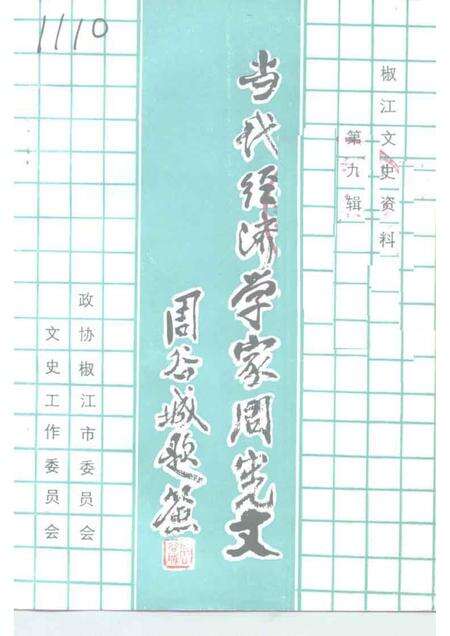 1110
椒江文史资料
第九辑
当代经济学家周宪文
周谷城题签
政协椒江市委员会
文史工作委员会